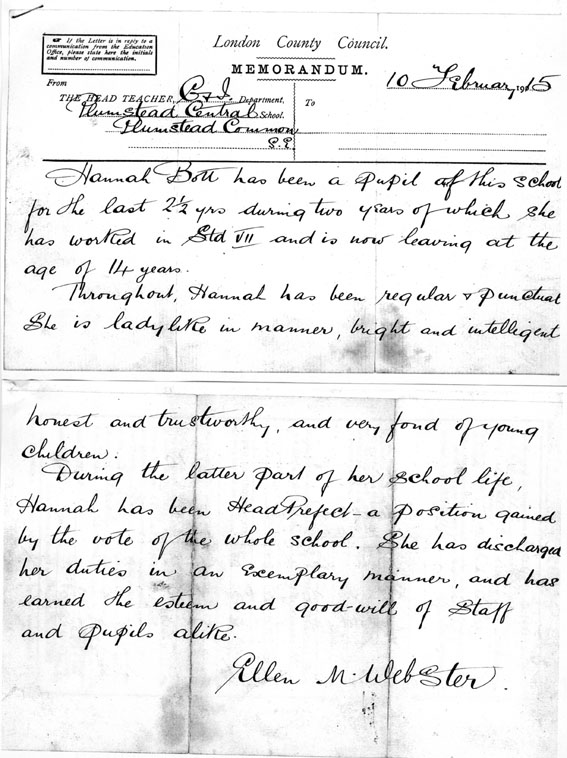 ☞ If the Letter is in reply to a
communication from the Education
Office, please state here the initials
and number of communication.
London County Council.
MEMORANDUM.
10 February, 1915
From
THE HEAD TEACHER, G & I. Department,
Plumstead Central School.
Plumstead Common
S.E
To
Hannah Bott has been a pupil of this school
for the last 2½ yrs during two years of which she
has worked in Std VII and is now leaving at the
age of 14 years.
Throughout, Hannah has been regular & punctual
She is ladylike in manner, bright and intelligent
honest and trustworthy, and very fond of young
children.
During the latter part of her school life,
Hannah has been Head Prefect - a position gained
by the vote of the whole school. She has discharged
her duties in an exemplary manner, and has
earned the esteem and good-will of Staff
and pupils alike.
Ellen M. Webster.